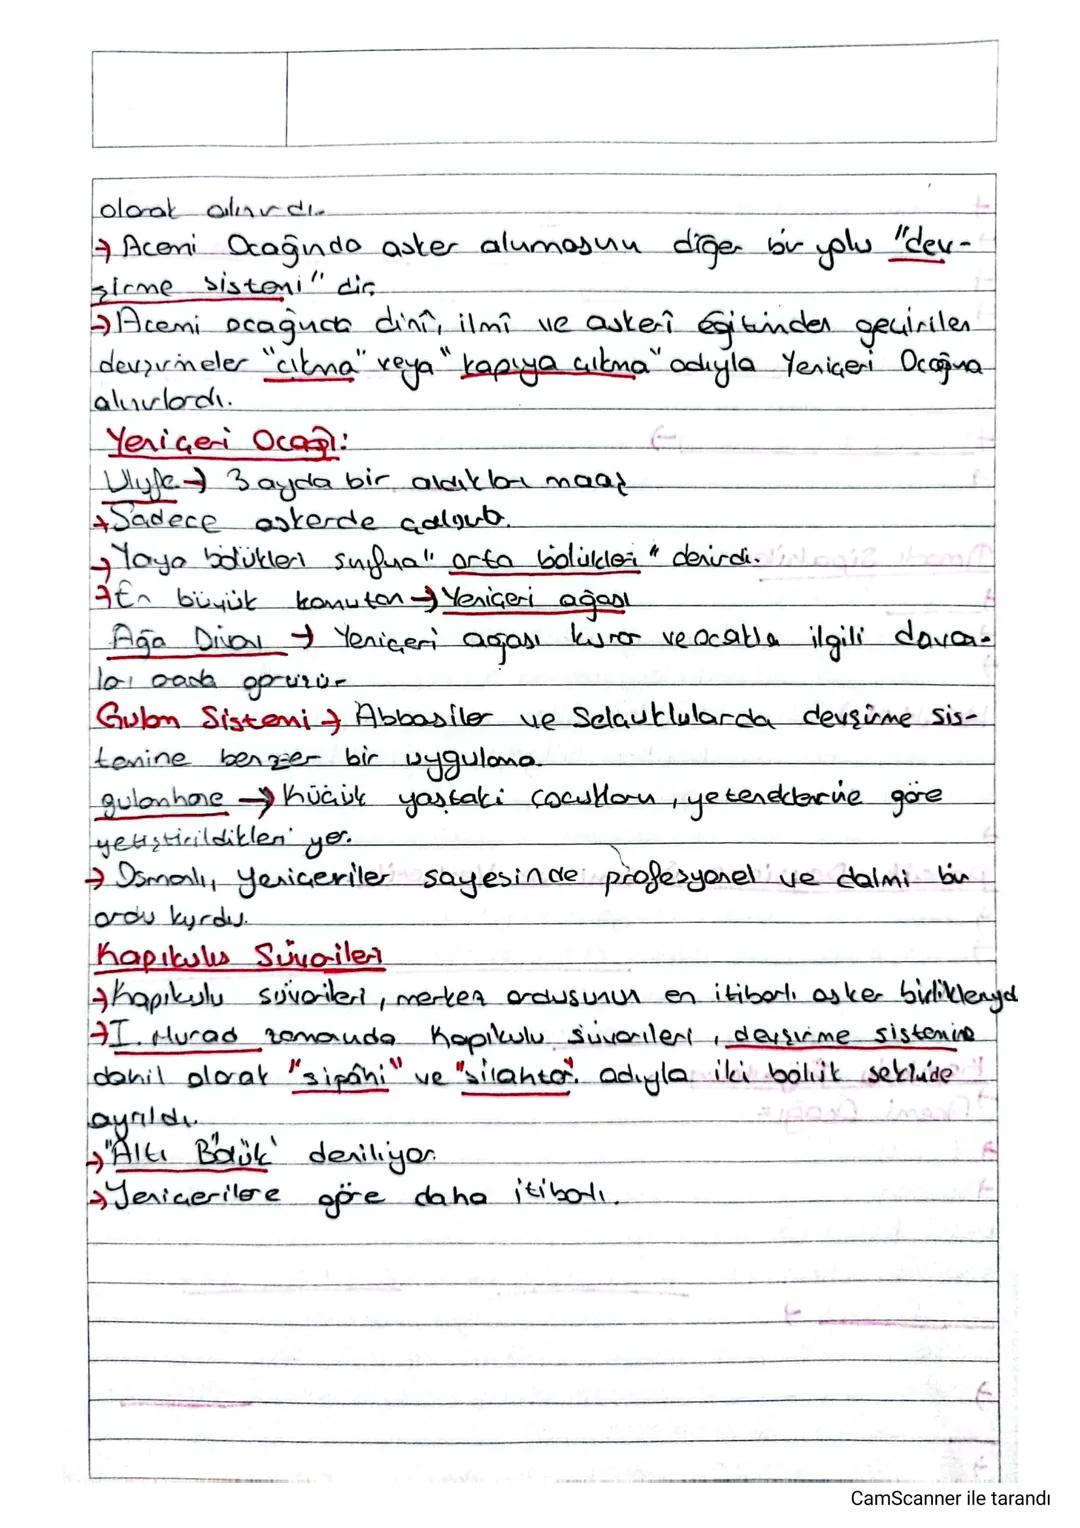 olarak alınırdı.
→ Acemi Ocağında asker alınmasının diğer bir yolu "dev-
şirme sistemi" dir.
→ Acemi ocağında dinî, ilmî ve askerî eğitimden geçirilen
devşirmeler "çıkma" veya "kapıya çıkma" adıyla Yeniçeri Ocağına
alınırlardı.
Yeniçeri Ocağı:
Ulufe → 3 ayda bir aldıkları maaş
→ Sadece askerde çalışır.
→ Yaya bölükleri sınıfına "orta bölükleri" denirdi.
→ En büyük komutan → Yeniçeri ağası
Ağa Divanı → Yeniçeri ağası kurar ve ocakla ilgili dava-
ları orada görürür
Gulam Sistemi → Abbasiler ve Selçuklularda devşirme sis-
temine benzer bir uygulama.
gulamhane → Küçük yaştaki çocukların, yeteneklerine göre
yetiştirildikleri yer.
→ Osmanlı, yeniçeriler sayesinde profesyonel ve daimi bir
ordu kurdu.
Kapıkulu Süvarileri
→ Kapıkulu süvarileri, merkez ordusunun en itibarlı asker birlikleriydi
→ I. Murad zamanında Kapıkulu süvarileri, devşirme sistemine
dahil olarak "sipâhi" ve "silahtar" adıyla iki bölük şeklinde
ayrıldı.
→ "Altı Bölük" deniliyor.
→ Yeniçerilere göre daha itibarlı.
CamScanner ile tarandı